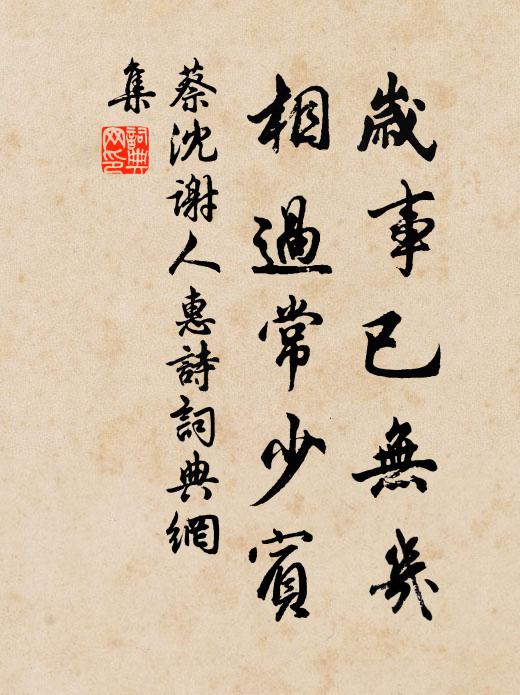 歲事已無幾
相過常少賓
蔡沈謝人惠詩詞典網
集
詞典
网印